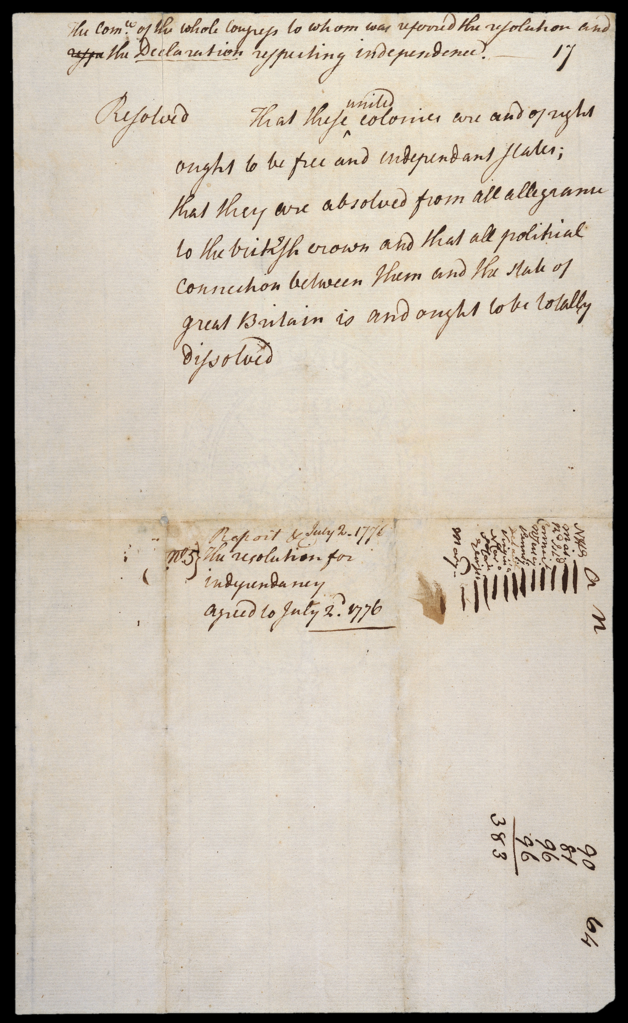 The Com.ee of the whole Congress to whom was referred the resolution and
respe the Declaration respecting independence. — 17
Resolved That these united colonies are and of right
ought to be free and independant states;
that they are absolved from all allegiance
to the british crown and that all political
connection between them and the state of
great Britain is and ought to be totally
dissolved
Report &c July 2. 1776
(No. 5) The resolution for
independancy
agreed to July 2d. 1776
90
81
96
96
383
64